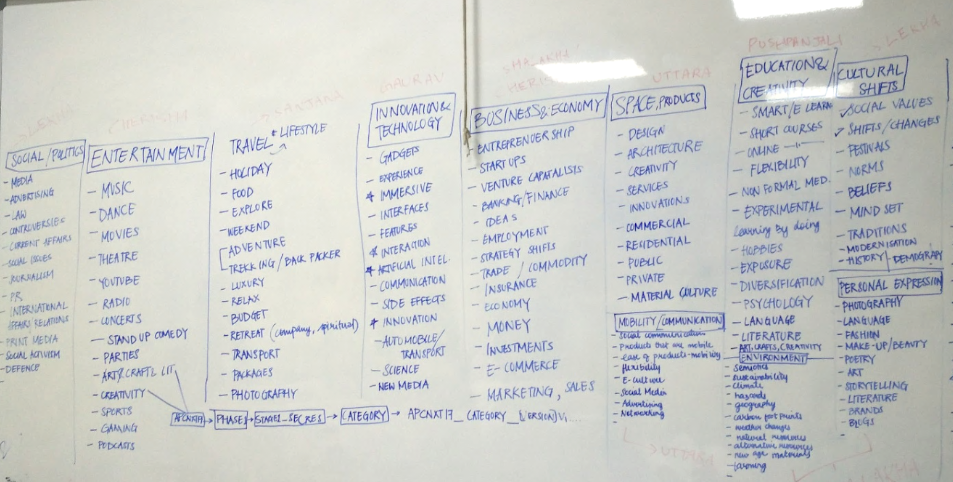 SOCIAL/POLITICS
- MEDIA
- ADVERTISING
- LAW
- CONTROVERSIES
- CURRENT AFFAIRS
- SOCIAL ISSUES
- JOURNALISM
- PR
- INTERNATIONAL
AFFAIRS RELATIONS
- PRINT MEDIA
- SOCIAL ACTIVISM
- DEFENCE
ENTERTAINMENT
- MUSIC
- DANCE
- MOVIES
- THEATRE
- YOUTUBE
- RADIO
- CONCERTS
- STAND UP COMEDY
- PARTIES
- ART& CRAFT& LIT
- CREATIVITY
- SPORTS
- GAMING
- PODCASTS
SANJANA
TRAVEL & LIFESTYLE
- HOLIDAY
- FOOD
- EXPLORE
- WEEKEND
ADVENTURE
TREKKING/BACK PACKER
- LUXURY
- RELAX
- BUDGET
- RETREAT (company, spiritual)
- TRANSPORT
- PACKAGES
- PHOTOGRAPHY
GAURAV
INNOVATION &
TECHNOLOGY
- GADGETS
- EXPERIENCE
* IMMERSIVE
- INTERFACES
- FEATURES
* INTERACTION
* ARTIFICIAL INTEL.
- COMMUNICATION
- SIDE EFFECTS
* INNOVATION
- AUTOMOBILE/
TRANSPORT
- SCIENCE
- NEW MEDIA
BUSINESS & ECONOMY
- ENTREPRENEUR SHIP
- START UPS
- VENTURE CAPATALISTS
- BANKING/FINANCE
- IDEAS
- EMPLOYMENT
- STRATEGY SHIFTS
- TRADE / COMMODITY
- INSURANCE
- ECONOMY
- MONEY
- INVESTMENTS
- E-COMMERCE
- MARKETING, SALES
UTTARA
SPACE, PRODUCTS
- DESIGN
- ARCHITECTURE
- CREATIVITY
- SERVICES
- INNOVATIONS
- COMMERCIAL
- RESIDENTIAL
- PUBLIC
- PRIVATE
- MATERIAL CULTURE
MOBILITY/COMMUNICATION
- Social communication
- Products that are mobile
- ease of products-mobility
- flexibility
- E-culture
- Social Media
- Advertising
- Networking
-
PUSHPANJALI
EDUCATION &
CREATIVITY
- SMART/E LEARN
- SHORT COURSES
- ONLINE - " -
- FLEXIBILITY
- NON FORMAL MED.
- EXPERIMENTAL
Learning by doing
- HOBBIES
- EXPOSURE
- DIVERSIFICATION
- PSYCHOLOGY
- LANGUAGE
LITERATURE
- ART, CRAFTS, CREATIVITY
ENVIRONMENT
- Semiotics
- sustainability
- climate
- hazards
- geography
- carbon foot prints
- weather changes
- natural resources
- alternative resources
- new age materials
- farming
-
LEKHA
CULTURAL
SHIFTS
✓ SOCIAL VALUES
✓ SHIFTS/CHANGES
- FESTIVALS
- NORMS
- BELIEFS
- MIND SET
- TRADITIONS
- MODERNISATION
- HISTORY/DEMOGRAPHY
PERSONAL EXPRESSION
- PHOTOGRAPHY
- LANGUAGE
- FASHION
- MAKE-UP/BEAUTY
- POETRY
- ART
- STORYTELLING
- LITERATURE
- BRANDS
- BLOGS
-
APCNXT17 → PHASE → STAGE1_SECRES → CATEGORY → APCNXT17_CATEGORY_(VERSION)V1...
UTTARA